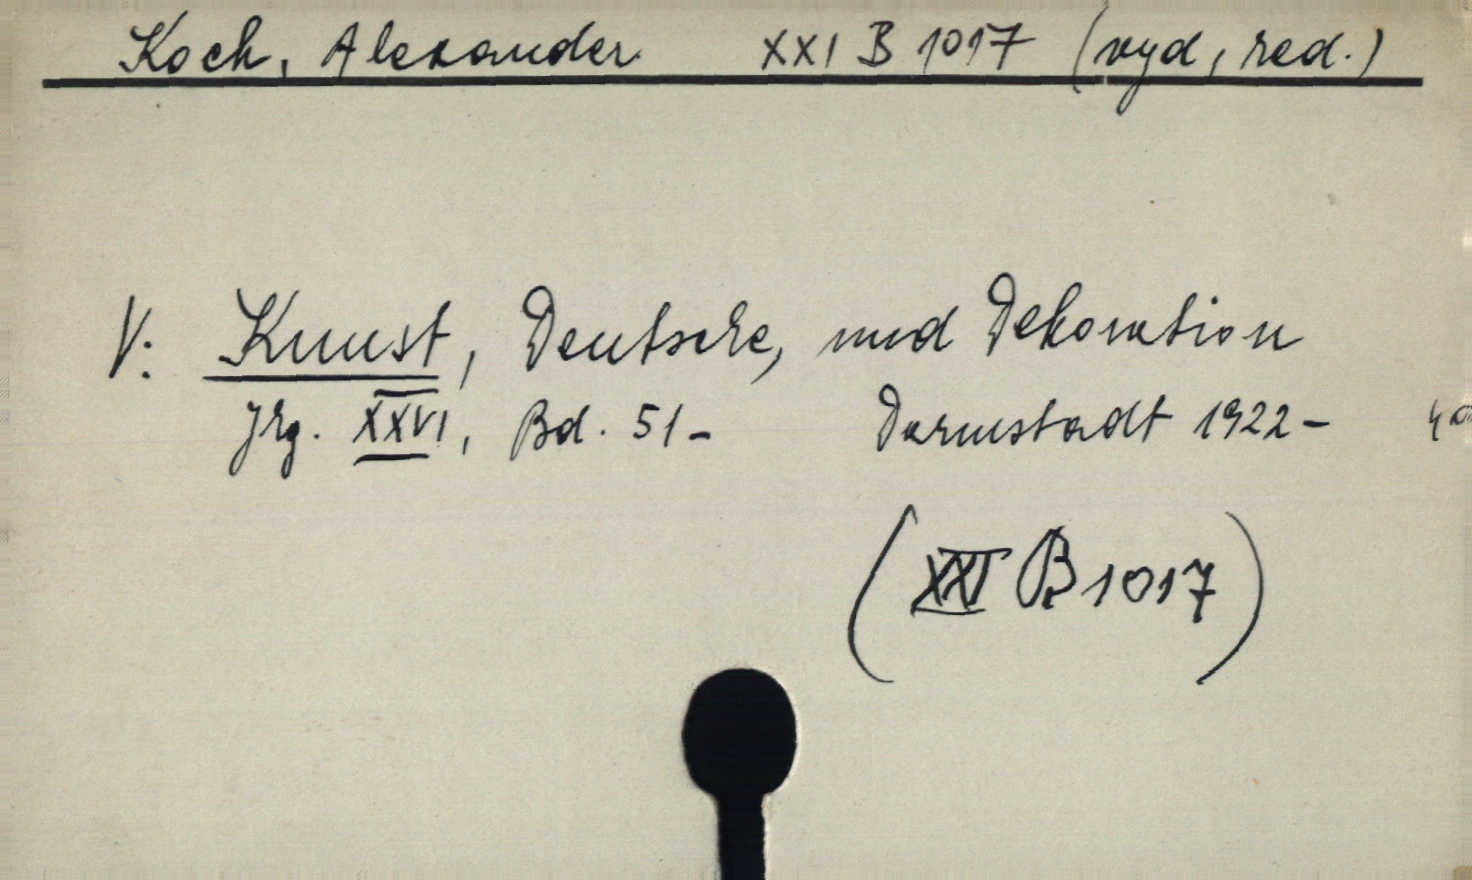 Koch, Alexander XXI B 1017 (vyd, red.)
V: Kunst, Deutsche, und Dekoration
Jrg. XXVI, Bd. 51- Darmstadt 1922- 4°
(XXI B 1017)